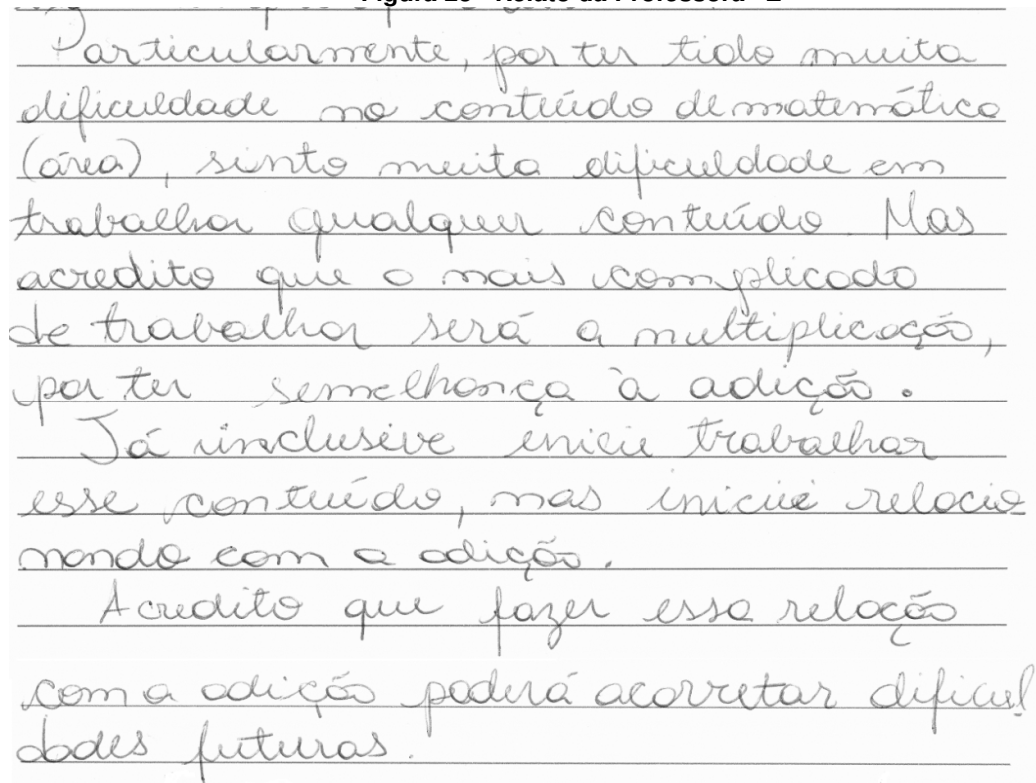 Particularmente, por ter tido muita
dificuldade no conteúdo de matemática
(área), sinto muita dificuldade em
trabalhar qualquer conteúdo. Mas
acredito que o mais complicado
de trabalhar será a multiplicação,
por ter semelhança à adição.
Já inclusive inicie trabalhar
esse conteúdo, mas iniciei relacio
nando com a adição.
Acredito que fazer essa relação
com a adição poderá acorretar dificul
dades futuras.